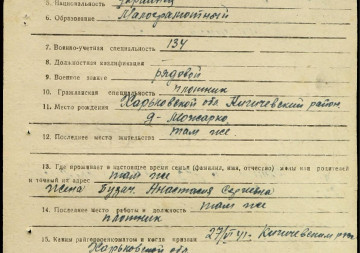 5. Национальность украинец
6. Образование Малограмотный
7. Военно-учетная специальность 134
8. Должностная квалификация
9. Военное звание рядовой
10. Гражданская специальность плотник
11. Место рождения Харьковской обл Кигичевский район
д- Можарка
12. Последнее место жительства там же
13. Где проживает в настоящее время семья (фамилия, имя, отчество) жены или родителей
и точный их адрес там же
жена Анастасия Сергеевна
14. Последнее место работы и должность там же
плотник
15. Каким райгорвоенкоматом и когда призван 27/VI 41г. Кигичевском
Харьковской обл